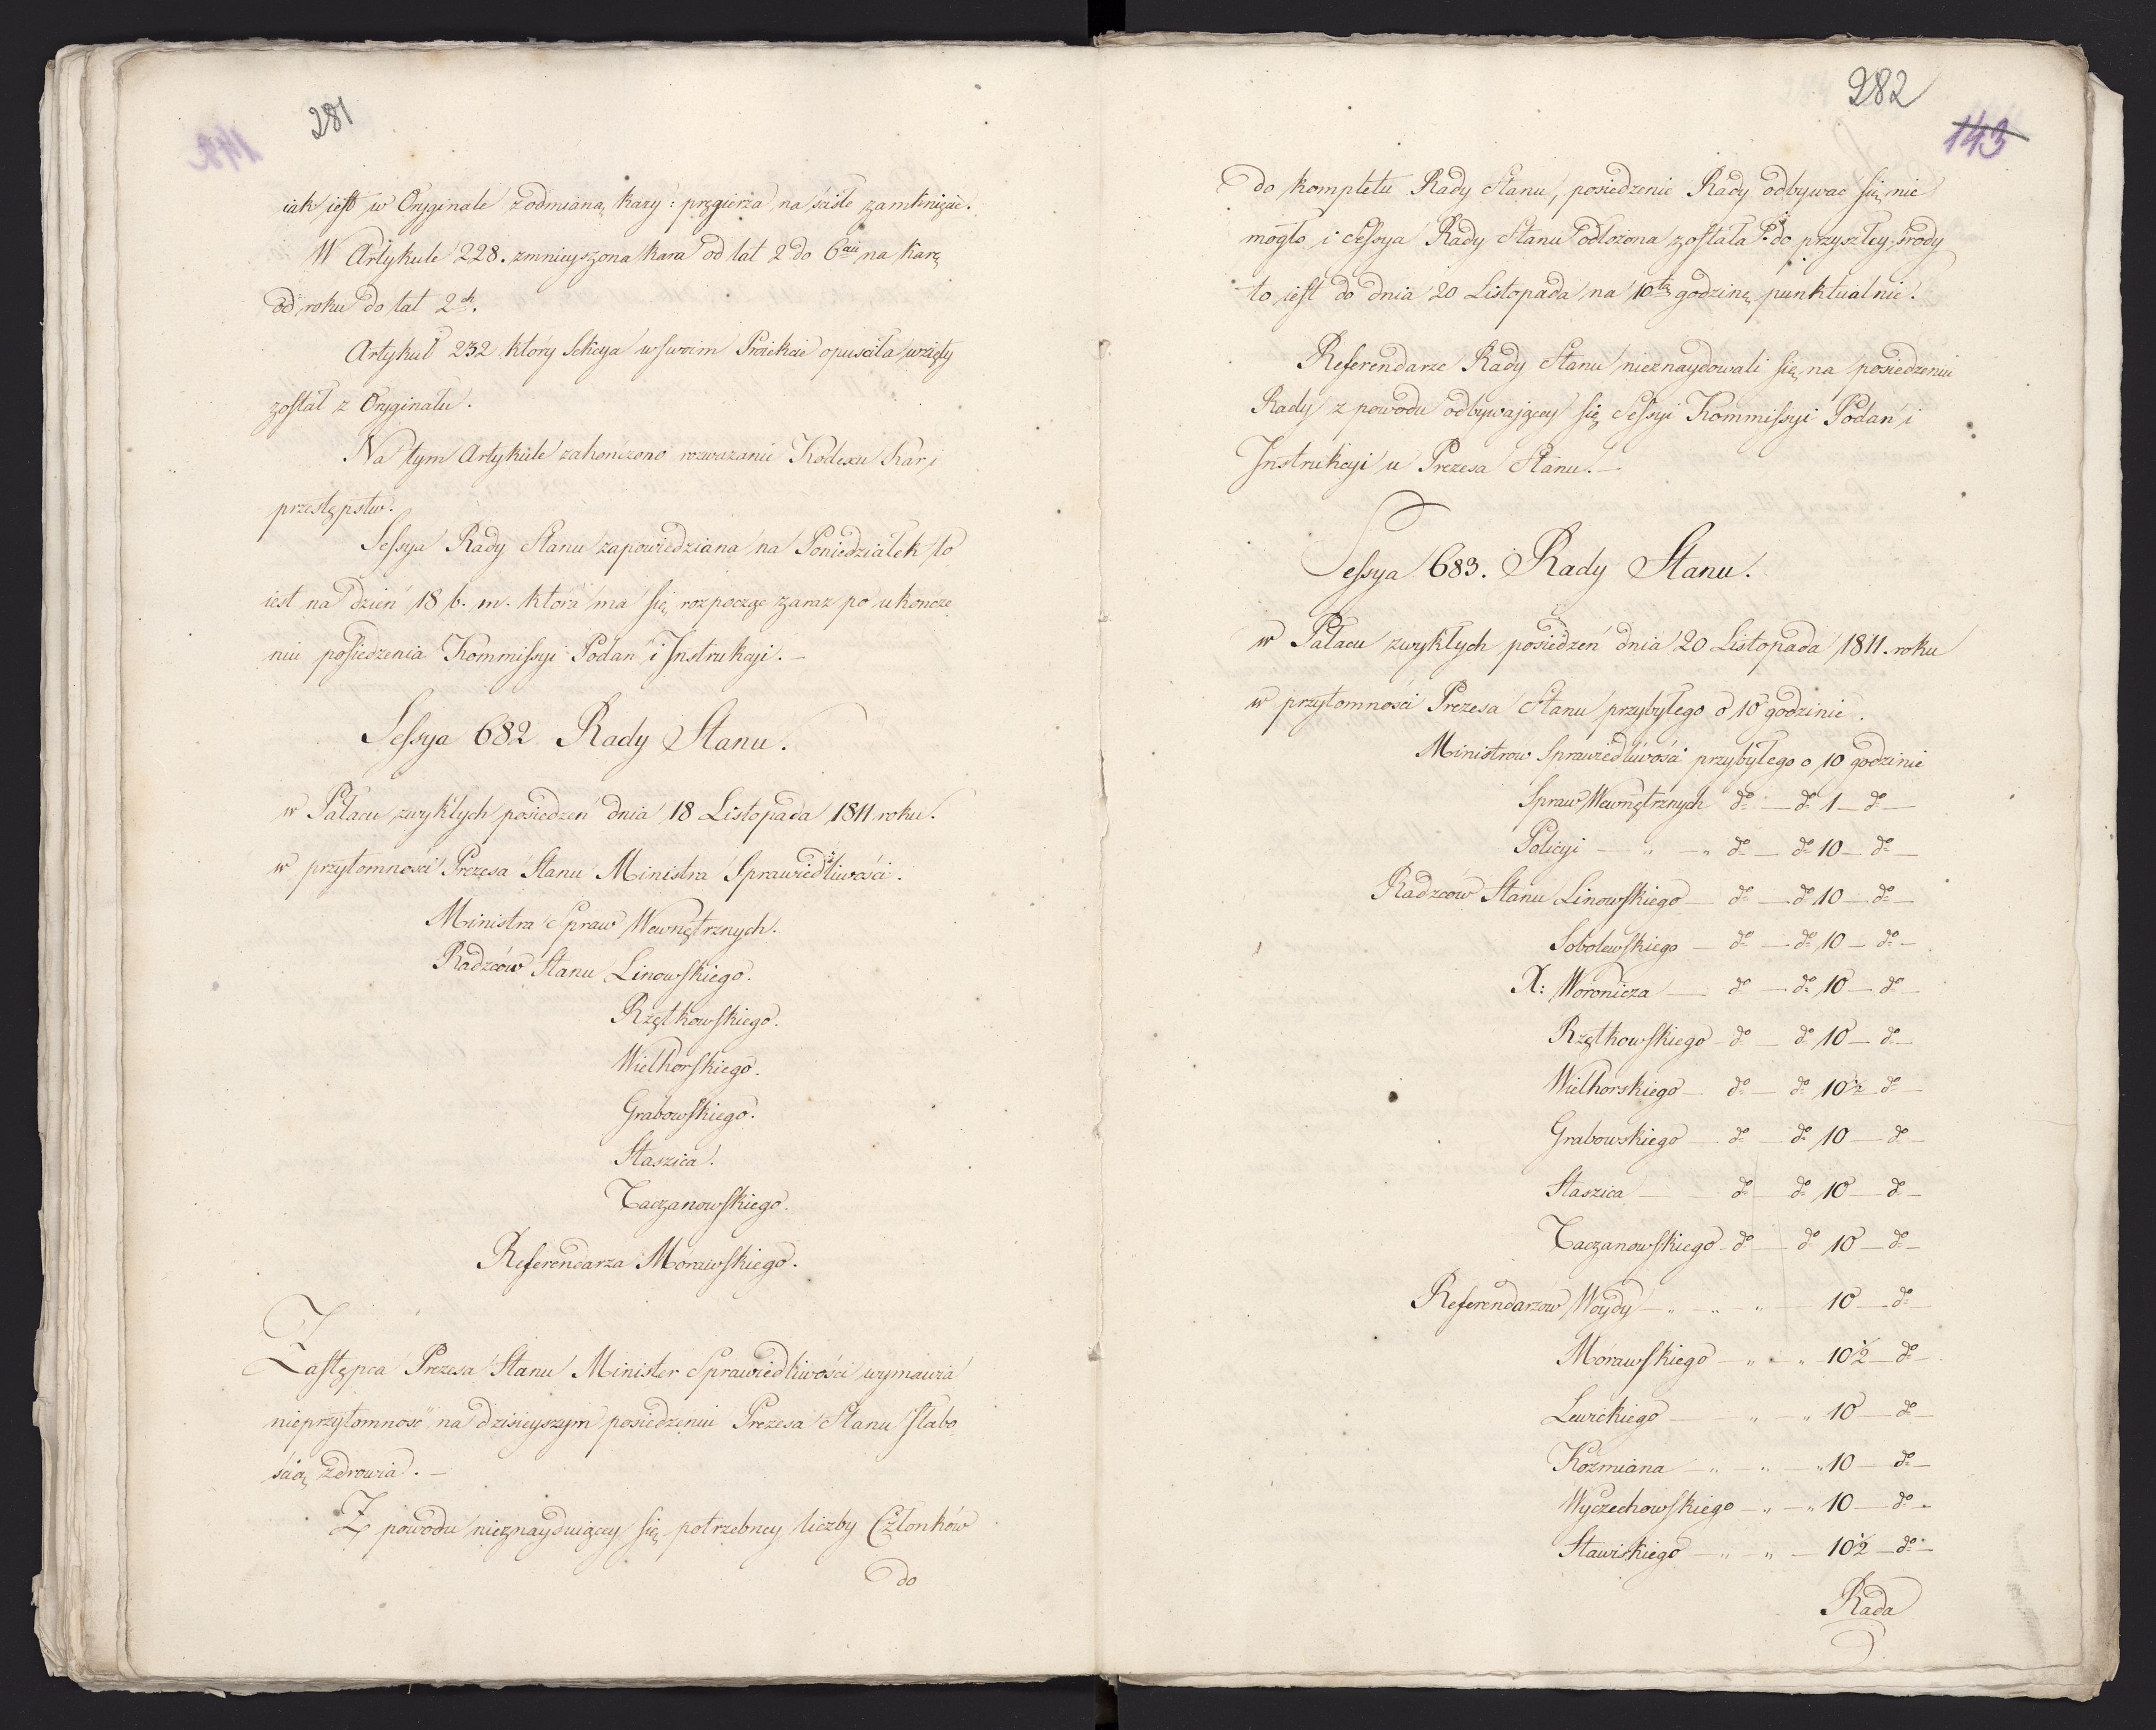 281
iak iest w Oryginale z odmianą kary: pręgierza na ścisłe zamknięcie.
W Artykule 228. zmnieyszona kara od lat 2 do 6ciu na karę
od roku do lat 2ch.
Artykuł 232 ktory Sekcya w swoim Proiekcie opuściła wzięty
został z Oryginału.
Na tym Artykule zakończono rozważanie Kodexu Kar i
przestępstw.
Sessya Rady Stanu zapowiedziana na Poniedziałek to
iest na dzień 18 b. m. ktora ma się rozpocząc zaraz po ukończe
niu posiedzenia Kommissyi Podań i Instrukcyi. —
Sessya 682 Rady Stanu.
w Pałacu zwykłych posiedzeń dnia 18 Listopada 1811 roku.
w przytomności Prezesa Stanu Ministra Sprawiedliwości.
Ministra Spraw Wewnętrznych.
Radzców Stanu Linowskiego.
Rzętkowskiego.
Wielhorskiego.
Grabowskiego.
Staszica.
Taczanowskiego.
Referendarza Morawskiego.
Zastępca Prezesa Stanu Minister Sprawiedliwości wymawia
nieprzytomność na dzisieyszym posiedzeniu Prezesa Stanu słabo
ścią zdrowia. —
Z powodu nieznayduiącey się potrzebney liczby Członków
do
282
143
do kompletu Rady Stanu, posiedzenie Rady odbywac się nie
mogło i Sessya Rady Stanu odłożona została do przyszłey środy
to iest do dnia 20 Listopada na 10tą godzinę punktualnie.
Referendarze Rady Stanu nieznaydowali się na posiedzeniu
Rady z powodu odbywaiącey się Sessyi Kommissyi Podań i
Instrukcyi u Prezesa Stanu. —
Sessya 683. Rady Stanu.
w Pałacu zwykłych posiedzeń dnia 20 Listopada 1811. roku
w przytomności Prezesa Stanu przybyłego o 10 godzinie.
Ministrow Sprawiedliwości przybyłego o 10 godzinie
Spraw Wewnętrznych do — do 1 — do —
Policyi — " — " do — do 10 — do —
Radzców Stanu Linowskiego — do — do 10 — do —
Sobolewskiego — do — do 10 — do —
X: Woronicza — do — do 10 — do —
Rzętkowskiego — do — do 10 — do —
Wielhorskiego — do — do 10½ do —
Grabowskiego — do — do 10 — do —
Staszica — do — do 10 — do —
Taczanowskiego — do — do 10 — do —
Referendarzow Woydy — " — " — " — 10 — do
Morawskiego — " — " 10½ — do —
Lewickiego — " — " 10 — do —
Kozmiana — " — " — " 10 — do —
Wyczechowskiego — " — " 10 — do —
Stawiskiego — " — " — 10½ — do —
Rada